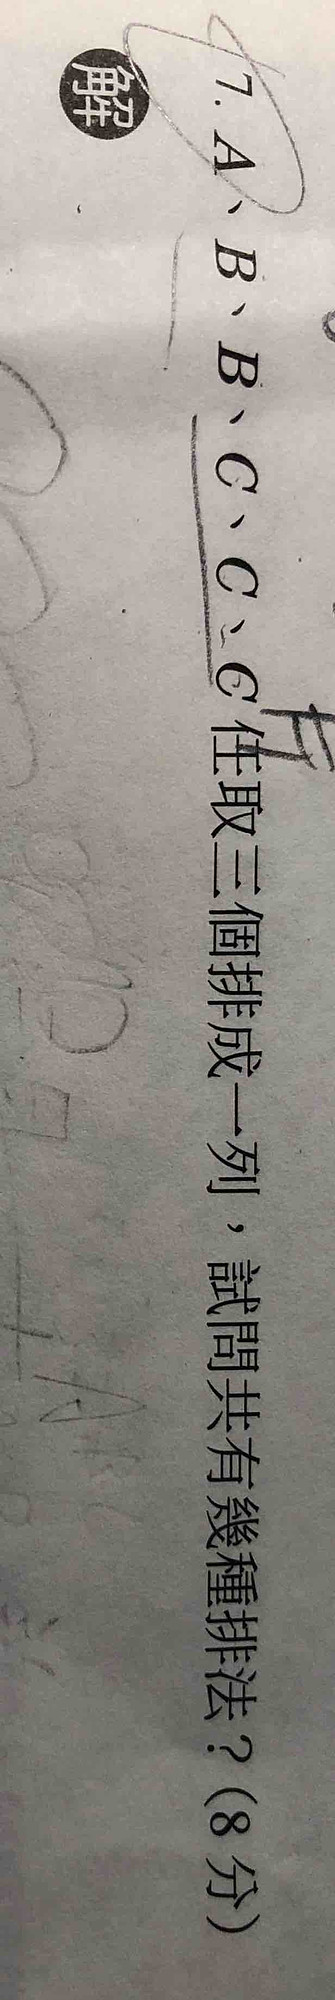 7. A、B、B、C、C、C 任取三個排成一列，試問共有幾種排法？(8 分)
解